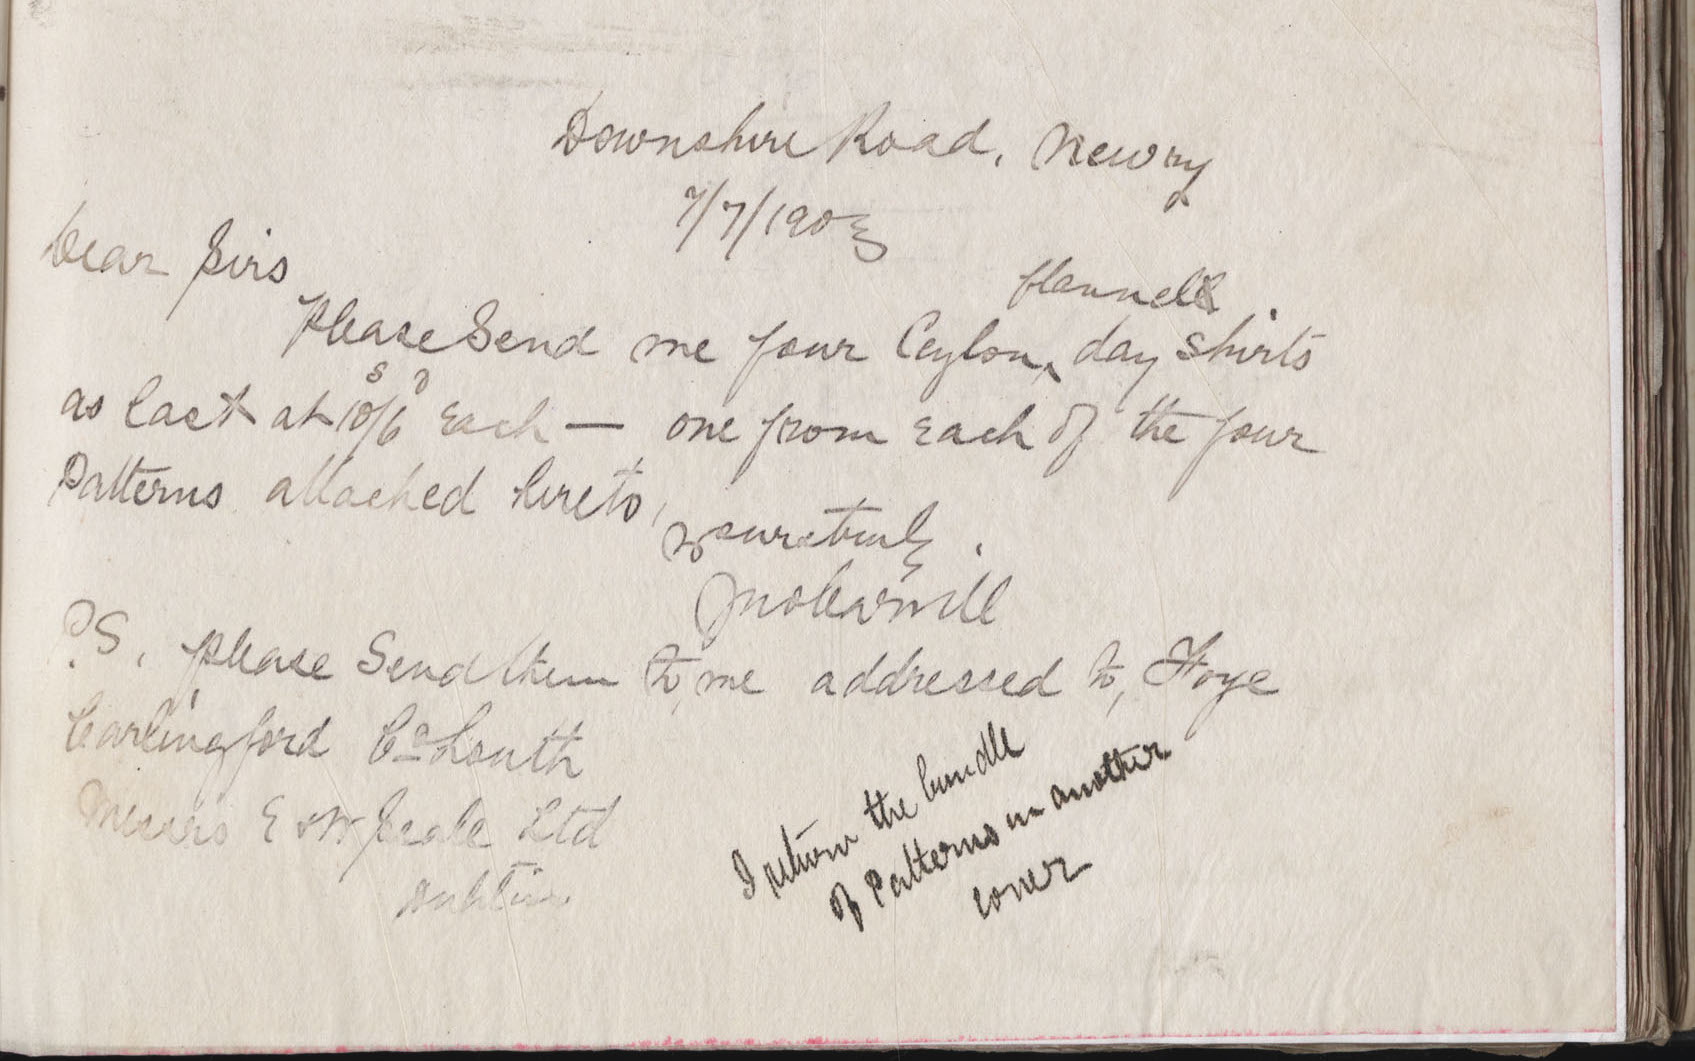 Downshire Road, Newry
7/7/1903
Dear Sirs
flannel
Please Send me four Ceylon, day Shirts
as last at 10s/6d Each — one from Each of the four
Patterns attached hereto,
yours truly.
Jno Carvill
P.S. please Send them to, me addressed to, Foye
Carlingford Co Louth
Messrs E & W Seale Ltd
Dublin
I return the bundle
of Patterns in another
cover